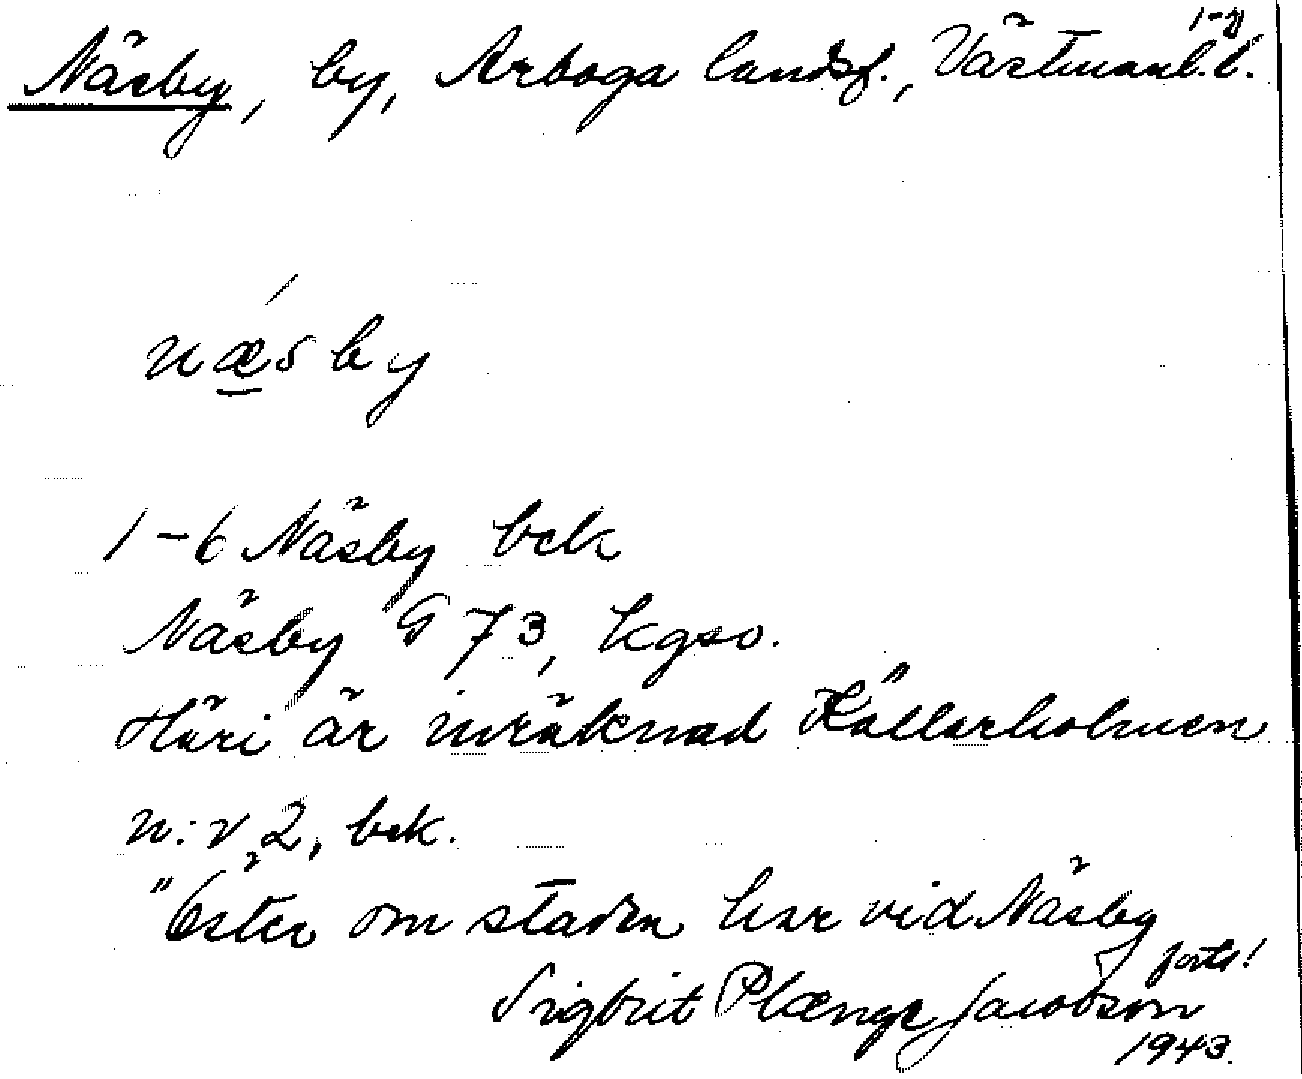 1-2)
Näsby, by, Arboga landsf., Västmanl. l.
næsby
1-6 Näsby bek
Näsby G 73, kgso.
Häri är inräknad Källarholmen
n:r 2, bek.
"Öster om staden har vid Näsby
forts!
Sigbrit Plænge Jacobson
1943.